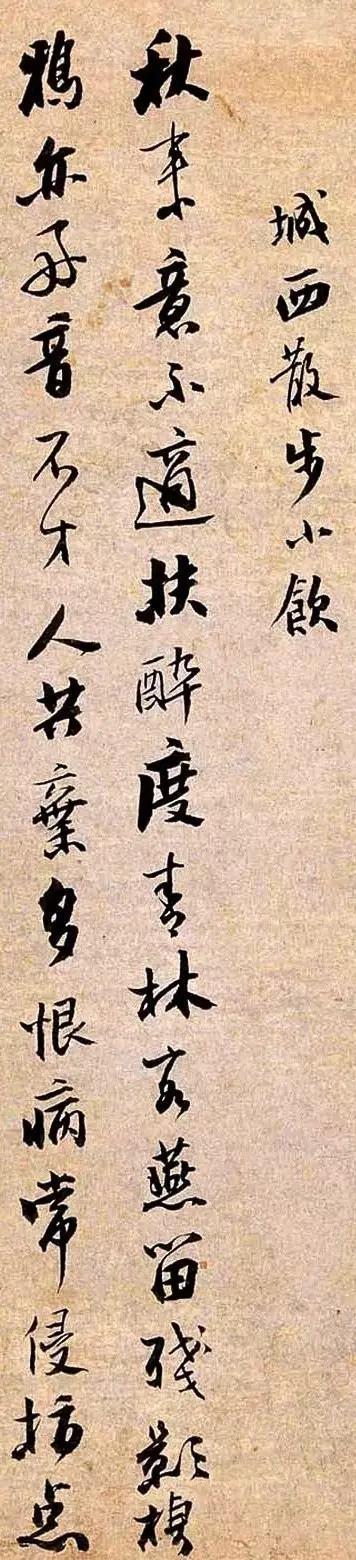 城西散步小飲
秋来意不適扶醉度青林客燕留殘影棲
鴉亦好音不才人共棄多恨病常侵指点